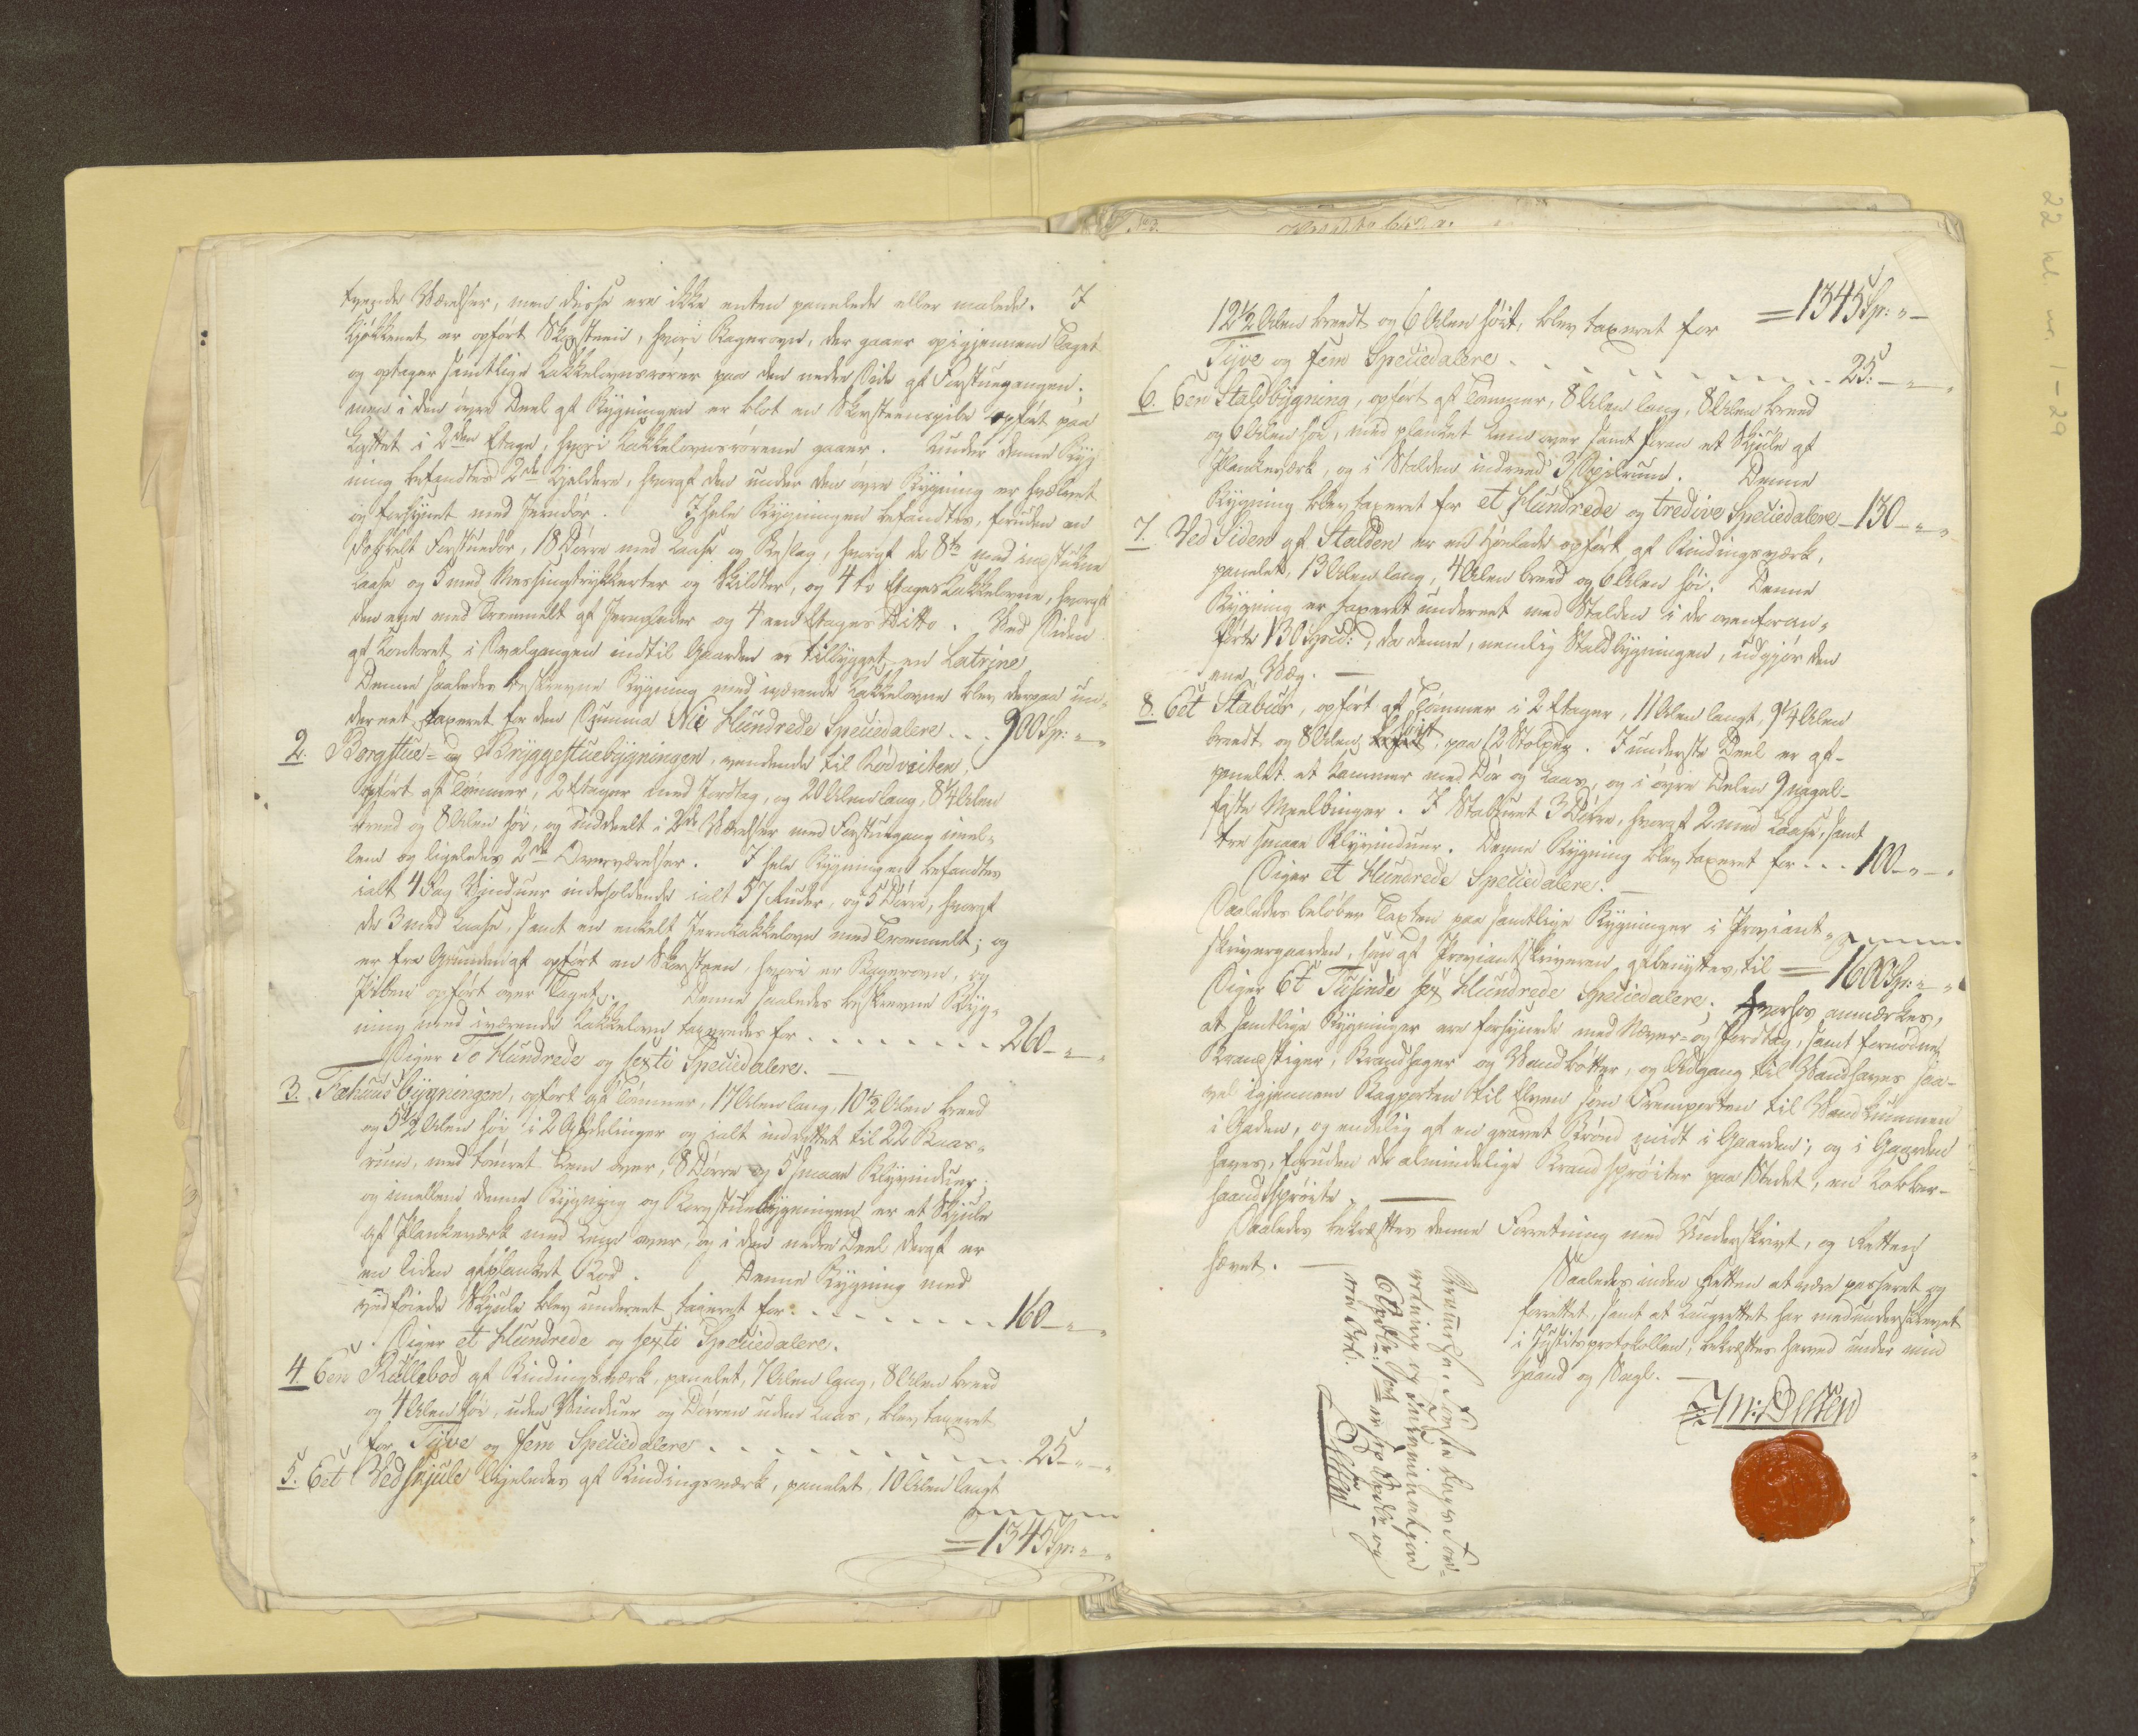 tvende Værelser, men disse ere ikke enten panelede eller malede. I
Kjøkkenet er opført Skorsteen, hvori Bagerovn, der gaaer op igjennem Taget
og optager samtlige Kakkelovnsrører paa den nedre Side af Forstuegangen;
men i den øvre Deel af Bygningen er blot en Skorsteenspibe opført paa
Loftet i 2den Etage, hvori Kakkelovnsrørene gaaer. Under denne Byg-
ning befandtes 2de Kjeldere, hvoraf den under den øvre Bygning er hvælvet
og forsynet med Jerndør. I hele Bygningen befandtes, foruden en
dobbelt Forstuedør, 18 Dørre med Laase og Beslag, hvoraf de 8te med indstukne
Laase og 5 med Messingtrykkerter og Skildter, og 4 to Etages Kakkelovne, hvoraf
den ene med Trommelt af Jernplader og 4 een Etages Ditto. Ved Siden
af Contoret i Svalgangen indtil Gaarden er tilbygget en Latrine
Denne saaledes beskrevne Bygning med iværende Kakkelovne blev derpaa un-
dereet taxeret for den Summa Nie Hundrede Speciedalere . . . 900 Sp: „ „
2. Borgstue- og Bryggestuebygningen, vendende til Rødveiten,
opført af Tømmer, 2 Etager med Jordtag, og 20 Alen lang, 8¼ Alen
breed og 8 Alen høi, og inddeelt i 2de Værelser med Forstuegang imel-
lem og ligeledes 2de Oververelser. I hele Bygningen befandtes
ialt 4 Fag Vinduer indeholdende ialt 57 Ruder, og 5 Dørre, hvoraf
de 3 med Laase, samt en enkelt Jernkakkelovn med Trommelt; og
er fra Grunden af opført en Skorsteen, hvori er Bagerovn, og
Piben opført over Taget. Denne saaledes beskrevne Byg-
ning med iværende Kakkelovn taxeredes for . . . . . . . . . 260 „ „
Siger To Hundrede og sexti Speciedalere.
3. Fæhuusbygningen, opført af Tømmer, 17 Alen lang, 10½ Alen breed
og 5½ Alen høi i 2 Afdelinger og ialt indrettet til 22 Baas-
rum, med tømret Lem over, 8 Dørre og 5 smaae Blyvinduer;
og imellem denne Bygning og Borgstuebygningen er et Skjule
af Plankeværk med Lem over, og i den nedre Deel deraf er
en liden afplanket Bod. Denne Bygning med
vedføiede Skjule blev undereet taxeret for . . . . . . . . . 160 „ „
Siger et Hundrede og sexti Speciedalere.
4. Een Rullebod af Bindingsværk, panelet, 7 Alen lang, 8 Alen breed
og 4 Alen høi, uden Vinduer og Dørren uden Laas, blev taxeret
for Tyve og fem Speciedalere . . . . . . . . . 25 „ „
5. Eet Vedskjule ligeledes af Bindingsværk, panelet 10 Alen langt
= 1345 Sp: „ „
= 1345 Sp: „ –
12½ Alen breedt og 6 Alen høit, blev taxeret for
Tyve og fem Speciedalere . . . . . . . . . 25. „ „
6. Een Staldbygning, opført af Tømmer, 8 Alen lang, 8 Alen breed
og 6 Alen høi, med planket Lem over samt foran et Skjule af
Plankeværk, og i Stalden indreed 3 Spilrum. Denne
Bygning blev taxeret for et Hundrede og tredive Speciedalere – 130 „ „
7. Ved Siden af Stalden er en Hølade opført af Bindingsværk,
panelet, 13 Alen lang, 4 Alen breed og 6 Alen høi. Denne
Bygning er taxeret undereet med Stalden i de ovenforan-
førte 130 Specd:, da denne, nemlig Staldbygningen, udgjør den
ene Væg. –
8. Eet Stabur, opført af Tømmer i 2 Etager, 11 Alen langt, 9¼ Alen
breedt og 8 Alen høit, paa 12 Stolper. I underste Deel er af-
panelet et Kammer med Dør og Laas, og i øvre Delen 9 nagel-
faste Meelbinger. I Staburet 3 Dørre, hvoraf 2 med Laase, samt
tre smaae Blyvinduer. Denne Bygning blev taxeret for . . . 100 „ „
Siger et Hundrede Speciedalere. –
Saaledes beløber Taxten paa samtlige Bygninger i Proviant-
skrivergaarden, som af Proviantskriveren afbenyttes, til = 1600 Sp: „ „
Siger Et Tusinde sex Hundrede Speciedalere; hvorhos anmærkes,
at samtlige Bygninger ere forsynede med Næver- og Jordtag, samt fornødne
Brandstiger, Brandhager og Vandbøtter, og Adgang til Vand haves saa-
vel igjennem Bagporten til Elven som Fremporten til Vandkummen
i Gaden, og endelig af en gravet Brønd midt i Gaarden; og i Gaarden
haves, foruden de almindelige Brandsprøiter paa Stedet, en Kobber-
haandsprøite. –
Saaledes bekræftes denne Forretning med Underskrivt, og Retten
hævet. –
Saaledes inden Retten at være passeret og
forrettet, samt at Laugrettet har medunderskrevet
i Justitsprotokollen, bekræftes herved under min
Haand og Seigl. –
22 kl. nr. 1-29